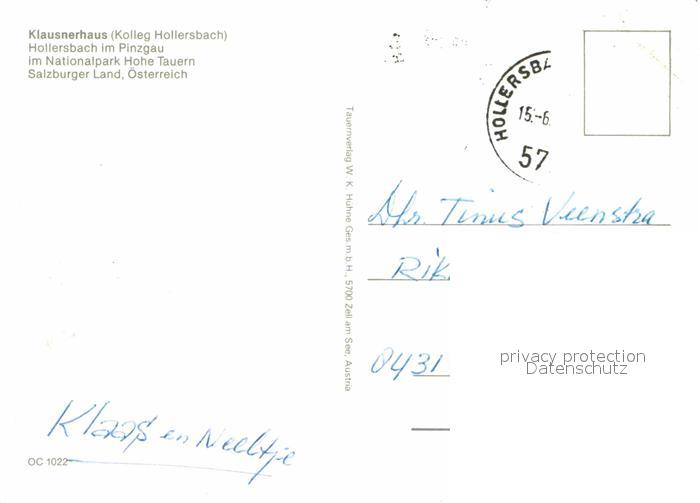 Klausnerhaus (Kolleg Hollersbach)
Hollersbach im Pinzgau
im Nationalpark Hohe Tauern
Salzburger Land, Österreich
Tauernverlag W. K. Hühne Ges.m.b.H., 5700 Zell am See, Austria
HOLLERSBA
15.-6.
57
Dhr. Tinus Veenstra
Rik
0431
privacy protection
Datenschutz
Klaas en Neeltje
OC 1022